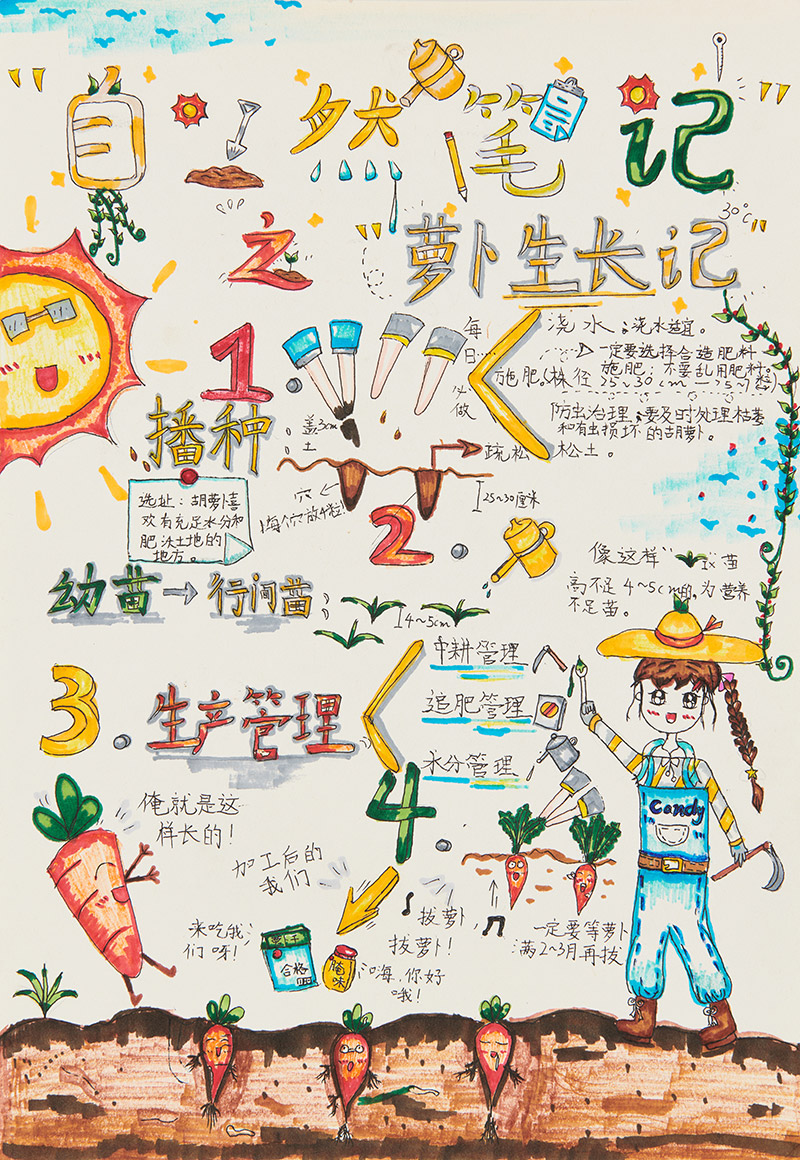 自然笔记
30℃
之
"萝卜生长记"
1.
播种
选址：胡萝卜喜
欢有充足水分和
肥沃土地的
地方。
盖3cm
土
穴
每日……
必做
浇水；浇水适宜。
施肥。
一定要选择合造肥料
施肥；不要乱用肥料。
防虫治理；要及时处理枯萎
和有虫损坏的胡萝卜。
疏松
松土。
25~30厘米
2.
幼苗→行间苗；
4~5cm
像这样"
苗
高不足4~5cm的，为营养
不足苗。
3.
生产管理
中耕管理
追肥管理
水分管理
Candy
俺就是这
样长的！
4.
加工后的
我们
来吃我
们呀！
合格
腌味
嗨，你好
哦！
拔萝卜
拔萝卜！
一定要等萝卜
满2~3月再拔